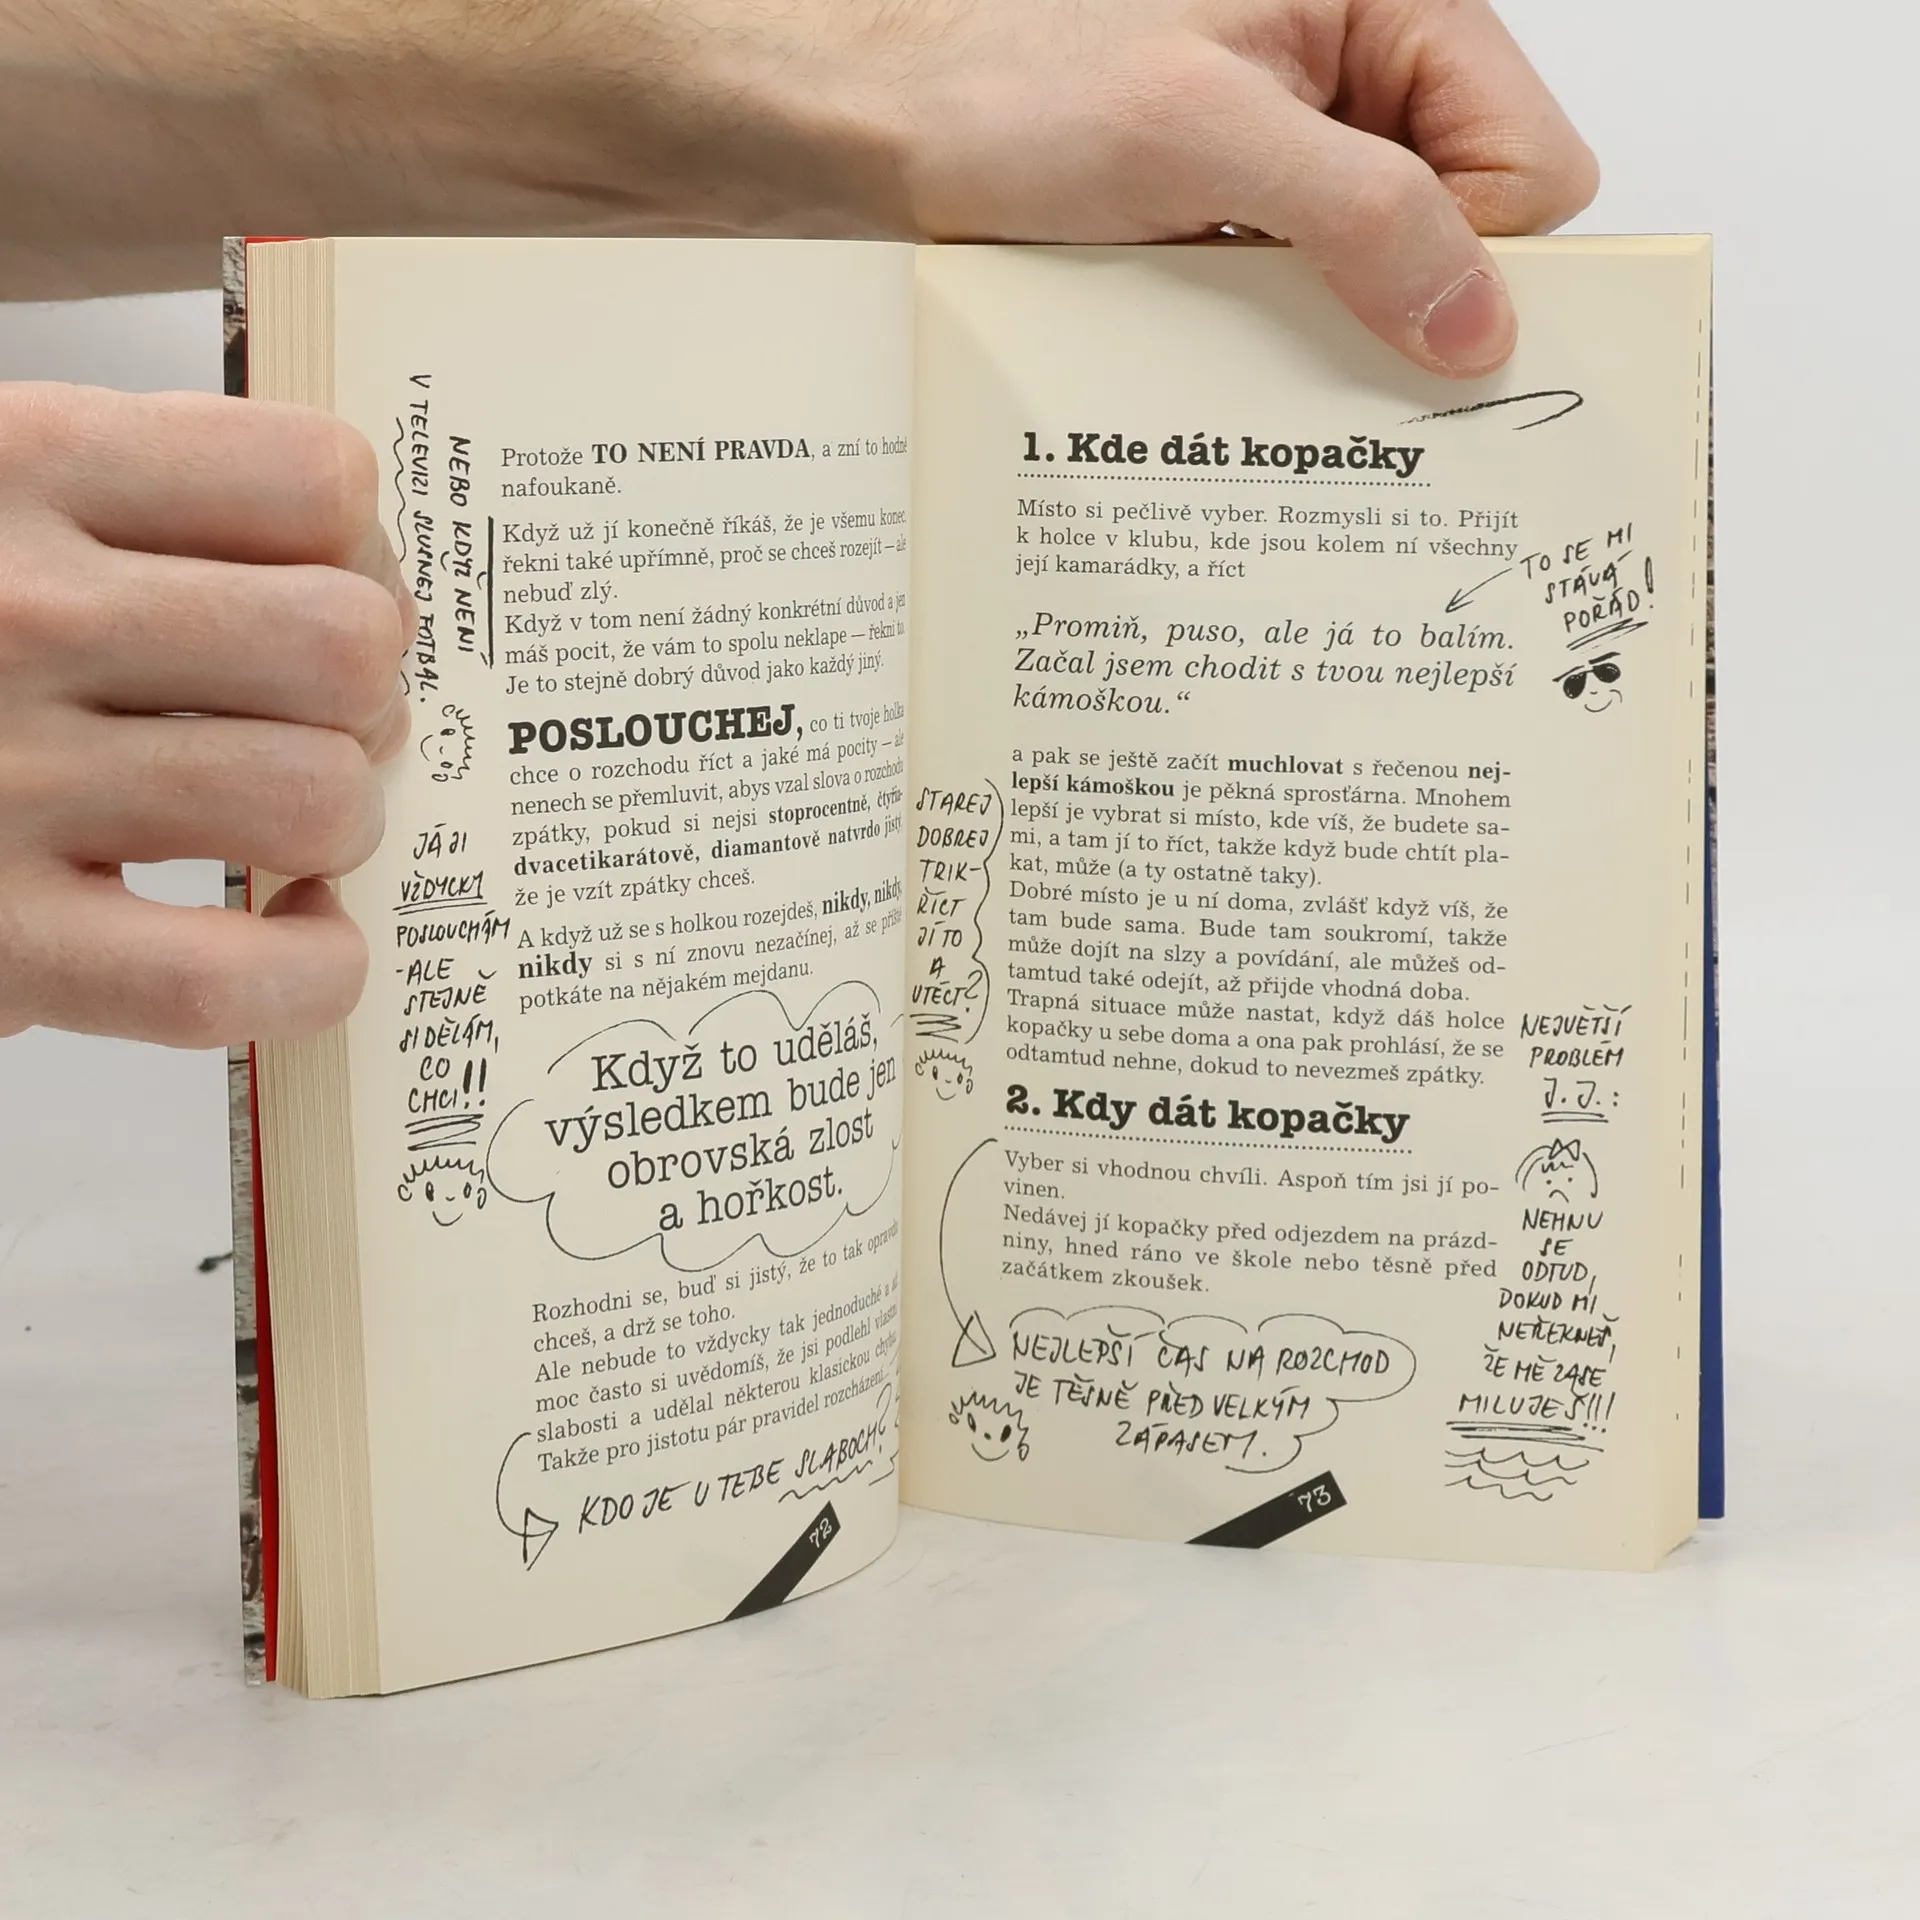 V TELEVIZI SLUŠNEJ FOTBAL.
NEBO KDYŽ NENÍ
Protože TO NENÍ PRAVDA, a zní to hodně
nafoukaně.
Když už jí konečně říkáš, že je všemu konec,
řekni také upřímně, proč se chceš rozejít – ale
nebuď zlý.
Když v tom není žádný konkrétní důvod a jen
máš pocit, že vám to spolu neklape – řekni to.
Je to stejně dobrý důvod jako každý jiný.
POSLOUCHEJ, co ti tvoje holka
chce o rozchodu říct a jaké má pocity – ale
nenech se přemluvit, abys vzal slova o rozchodu
zpátky, pokud si nejsi stoprocentně, čtyřia-
dvacetikarátově, diamantově natvrdo jistý,
že je vzít zpátky chceš.
A když už se s holkou rozejdeš, nikdy, nikdy,
nikdy si s ní znovu nezačínej, až se příště
potkáte na nějakém mejdanu.
JÁ JI
VŽDYCKY
POSLOUCHÁM
-ALE
STEJNĚ
SI DĚLÁM,
CO
CHCI!!
Když to uděláš,
výsledkem bude jen
obrovská zlost
a hořkost.
Rozhodni se, buď si jistý, že to tak opravdu
chceš, a drž se toho.
Ale nebude to vždycky tak jednoduché a až
moc často si uvědomíš, že jsi podlehl vlastní
slabosti a udělal některou klasickou chybu.
Takže pro jistotu pár pravidel rozcházení...
KDO JE U TEBE SLABOCH?
72
1. Kde dát kopačky
Místo si pečlivě vyber. Rozmysli si to. Přijít
k holce v klubu, kde jsou kolem ní všechny
její kamarádky, a říct
TO SE MI
STÁVÁ
POŘÁD!
„Promiň, puso, ale já to balím.
Začal jsem chodit s tvou nejlepší
kámoškou.“
a pak se ještě začít muchlovat s řečenou nej-
lepší kámoškou je pěkná sprosťárna. Mnohem
lepší je vybrat si místo, kde víš, že budete sa-
mi, a tam jí to říct, takže když bude chtít pla-
kat, může (a ty ostatně taky).
Dobré místo je u ní doma, zvlášť když víš, že
tam bude sama. Bude tam soukromí, takže
může dojít na slzy a povídání, ale můžeš od-
tamtud také odejít, až přijde vhodná doba.
Trapná situace může nastat, když dáš holce
kopačky u sebe doma a ona pak prohlásí, že se
odtamtud nehne, dokud to nevezmeš zpátky.
STAREJ
DOBREJ
TRIK-
ŘÍCT
JÍ TO
A
UTÉCT?
2. Kdy dát kopačky
Vyber si vhodnou chvíli. Aspoň tím jsi jí po-
vinen.
Nedávej jí kopačky před odjezdem na prázd-
niny, hned ráno ve škole nebo těsně před
začátkem zkoušek.
NEJVĚTŠÍ
PROBLÉM
J. J.:
NEHNU
SE
ODTUD,
DOKUD MI
NEŘEKNEŠ,
ŽE MĚ ZASE
MILUJEŠ!!!
NEJLEPŠÍ ČAS NA ROZCHOD
JE TĚSNĚ PŘED VELKÝM
ZÁPASEM.
73